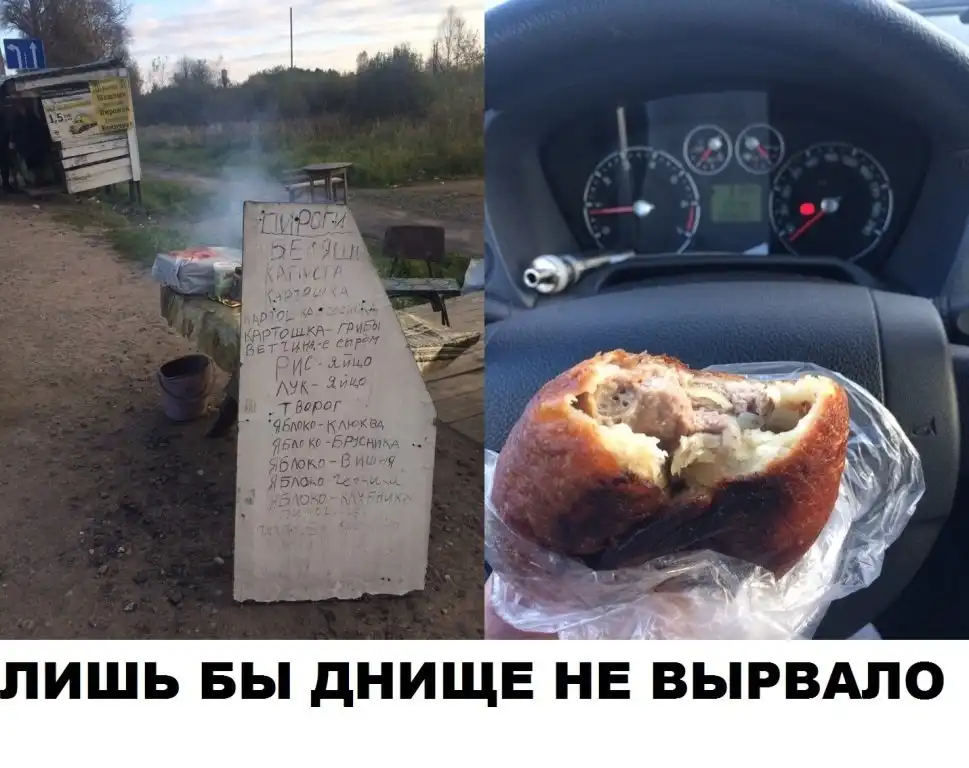 1,5
ПИРОГИ
БЕЛЯШИ
КАПУСТА
КАРТОШКА
КАРТОШКА-
КАРТОШКА-ГРИБЫ
ВЕТЧИНА-С СЫРОМ
РИС-ЯЙЦО
ЛУК-ЯЙЦО
ТВОРОГ
ЯБЛОКО-КЛЮКВА
ЯБЛОКО-БРУСНИКА
ЯБЛОКО-ВИШНЯ
ЯБЛОКО
ЯБЛОКО-КЛУБНИКА
ЛИШЬ БЫ ДНИЩЕ НЕ ВЫРВАЛО